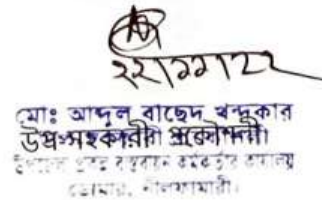 ২২/১১/২২
মোঃ আব্দুল বাছেদ খন্দকার
উপ-সহকারী প্রকৌশলী
উপজেলা প্রকল্প বাস্তবায়ন কর্মকর্তার কার্যালয়
ডোমার, নীলফামারী।